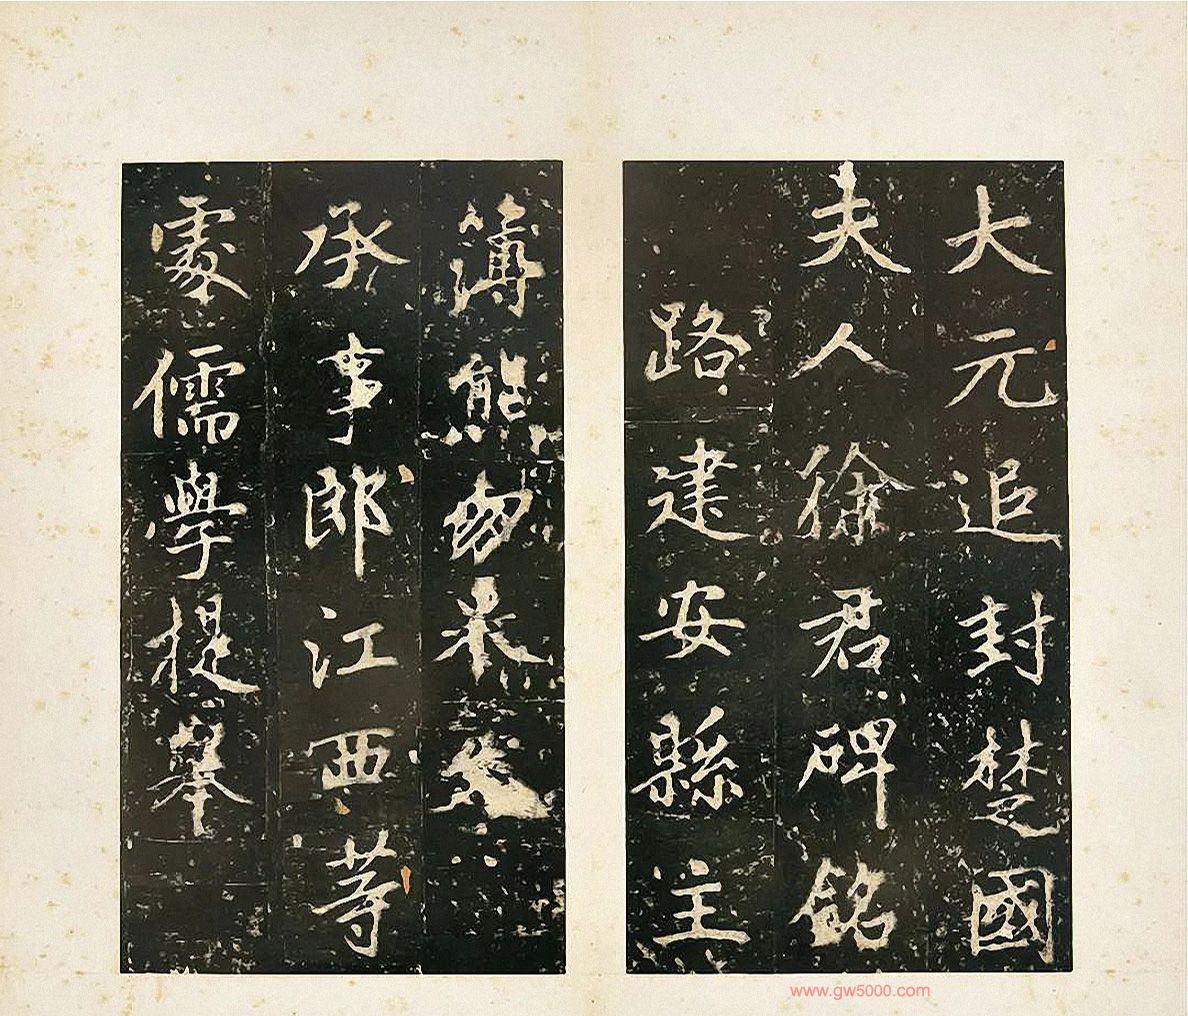 大元追封楚國
夫人徐君碑銘
路建安縣主
簿熊朋來
承事郎江西等
處儒學提舉
www.gw5000.com